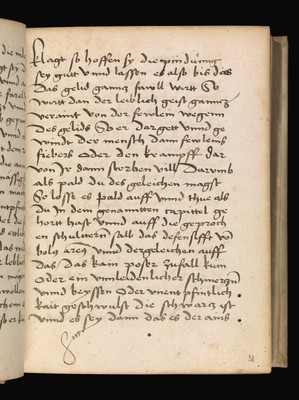 klagt so hoffen sy die pindũnng
sey gutt vnnd lassen es also bis das
Das gelid ganng fawll wirtt So
wirtt dan der leiblich geist ganng
veraint von der fewlein wegenn
Des gelids So er dar gett vnnd ge
windt der mensch dann fewleins
fiebers Oder den krampff dar
von Jr dann sterben vill Darumb
als pald du des geleichen magst
So losse es pald auff vnnd thue als
du In dem genanntten capittel ge
hortt hast vnnd auff die geproch
en schulttern sall das defensiff vō
bolo vnnd dergeleichen auff
das das kain poser zufall kum
Oder ein vnnleidenlicher schmerczn
vnnd beyssen Oder vnentpfintlich
kait geschwulst die schwarcz ist
vnnd es sey dann das es der arm